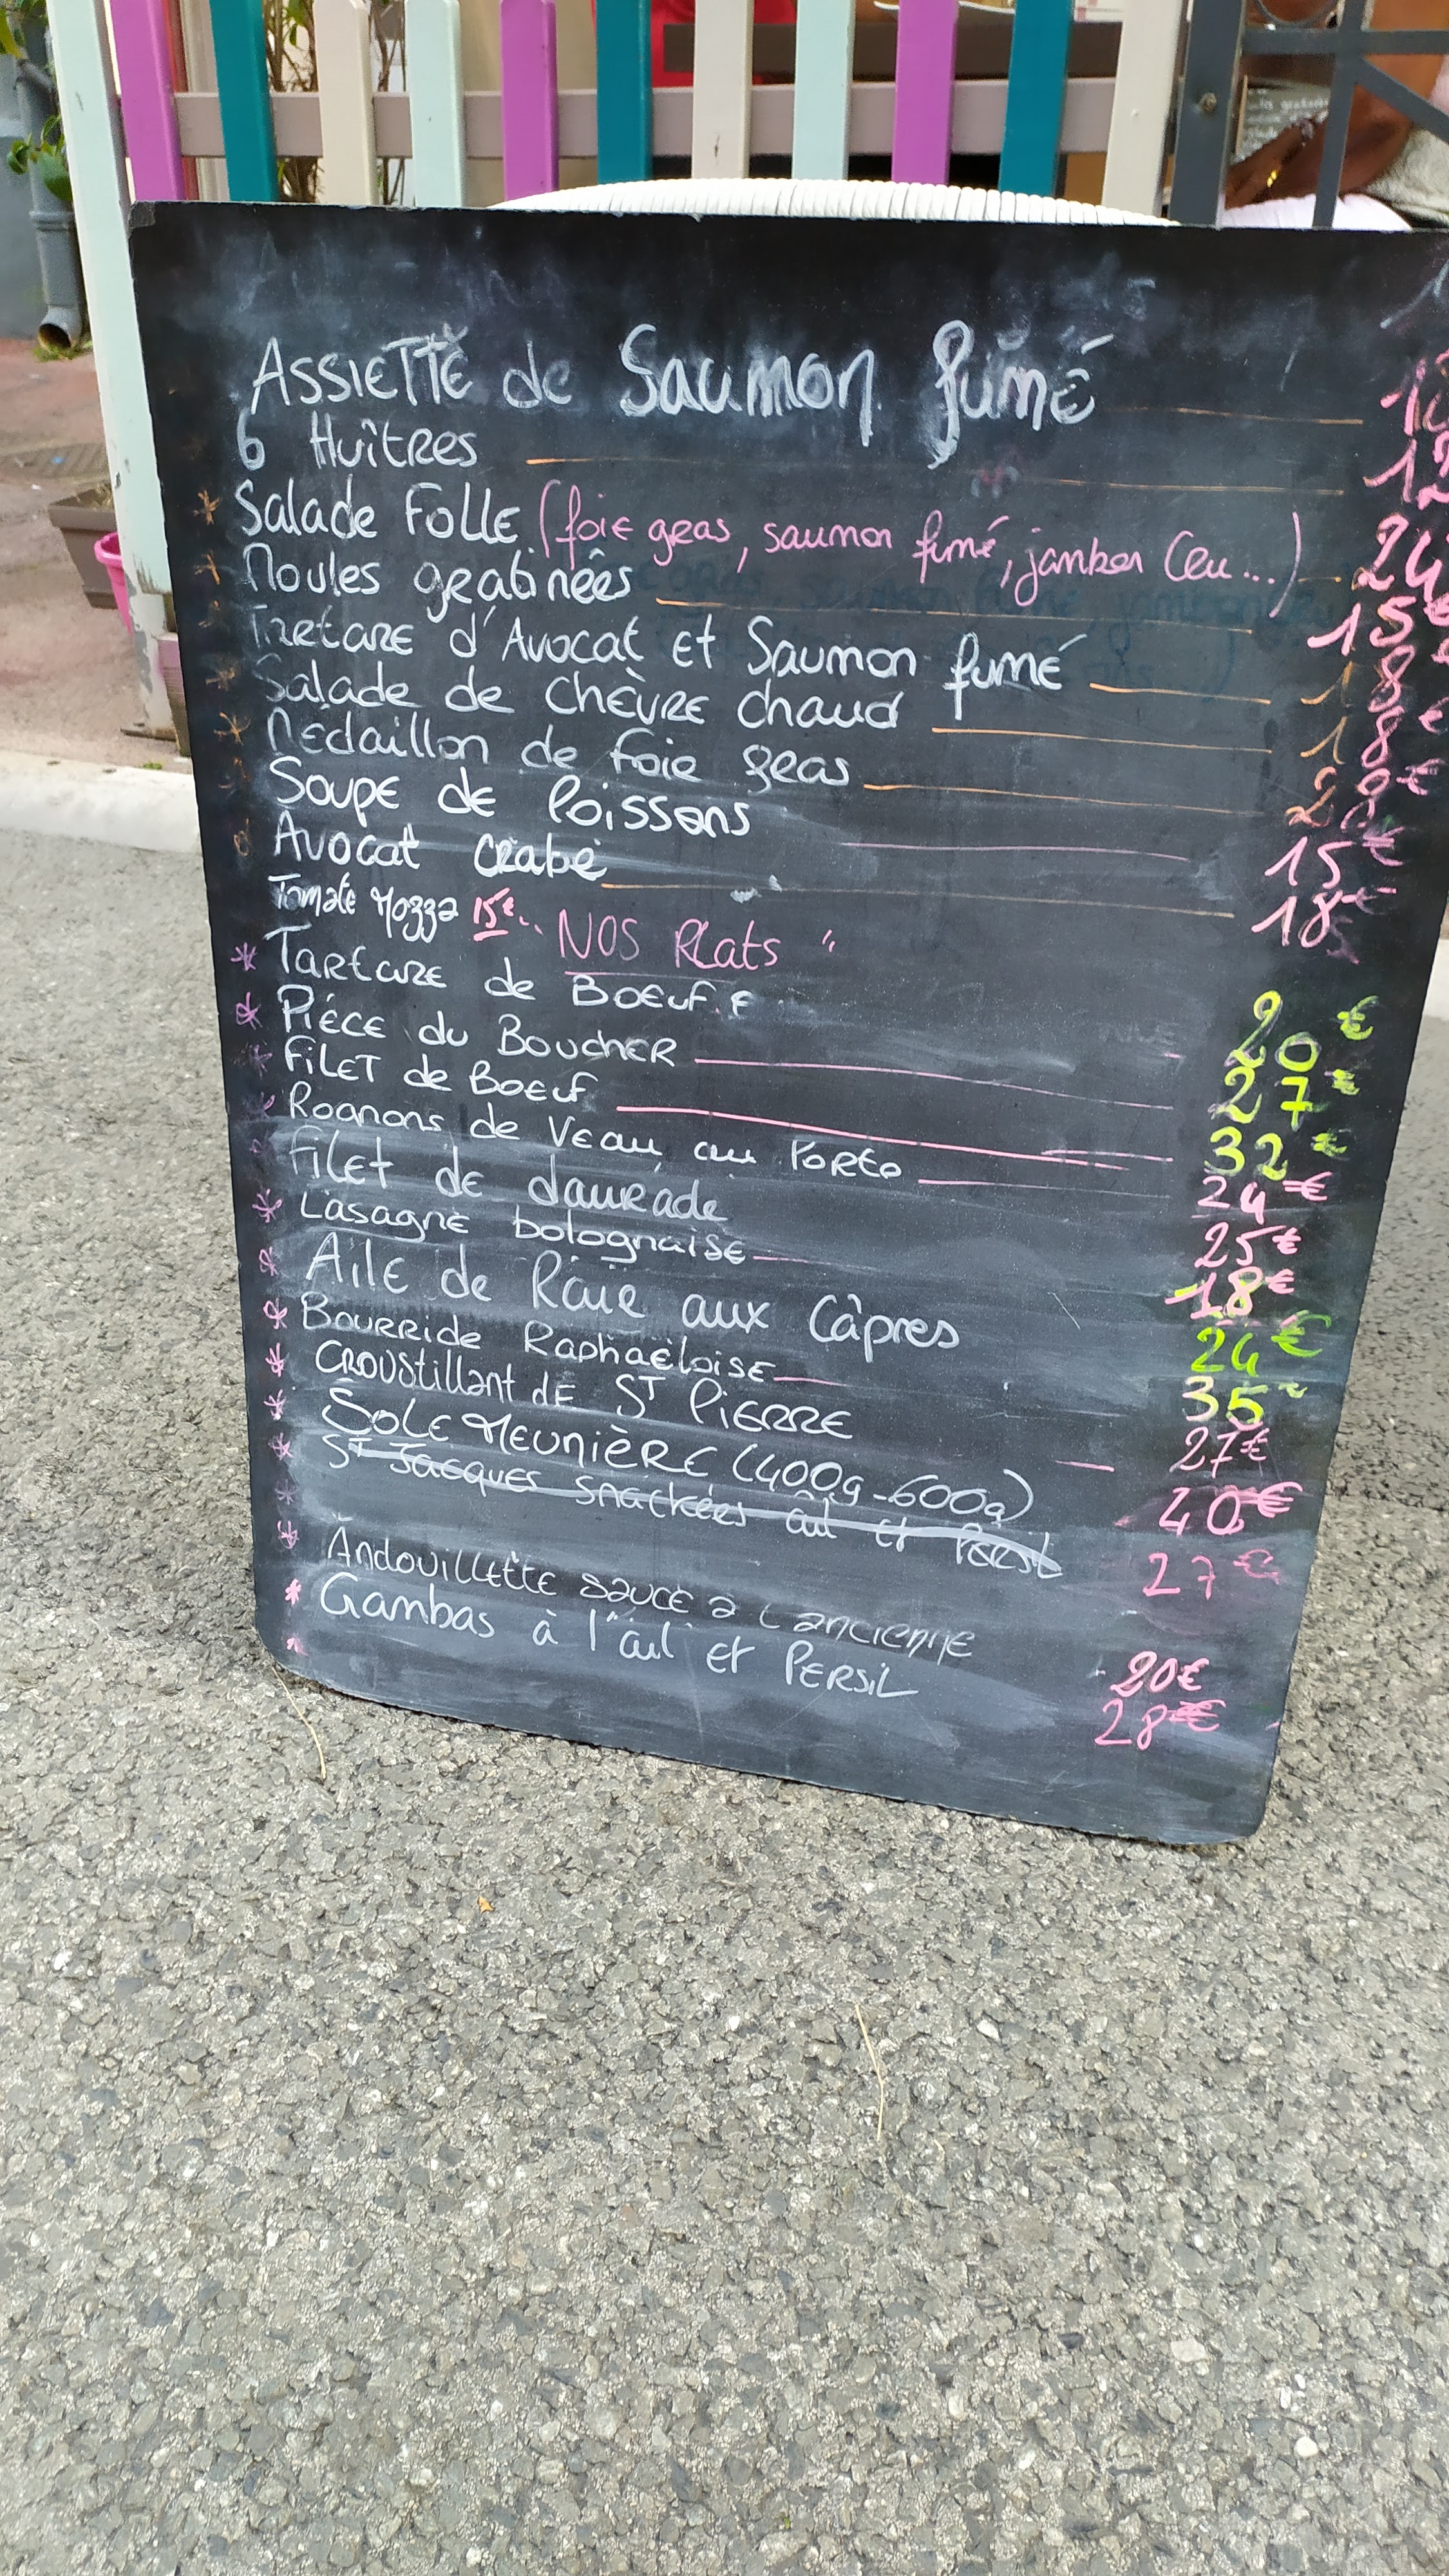 Assiette de Saumon fumé
6 Huîtres
Salade Folle (foie gras, saumon fumé, jambon Cru...) 24
Moules gratinées 15€
Tartare d'Avocat et Saumon fumé 18
Salade de Chèvre chaud 18€
Médaillon de foie gras €
Soupe de Poissons 15€
Avocat Crabe 18€
Tomate Mozza 15€
Nos Plats
Tartare de Boeuf 20€
Piéce du Boucher 27€
Filet de Boeuf 32€
Rognons de Veau au Porto 24€
Filet de daurade 25€
Lasagne bolognaise 18€
Aile de Raie aux Câpres 24€
Bourride Raphaëloise 35
Croustillant de St Pierre 27€
Sole Meunière (400g-600g) 40€
St Jacques snackées ail et Persil 27€
Andouillette sauce à l'ancienne 20€
Gambas à l'ail et Persil 28€